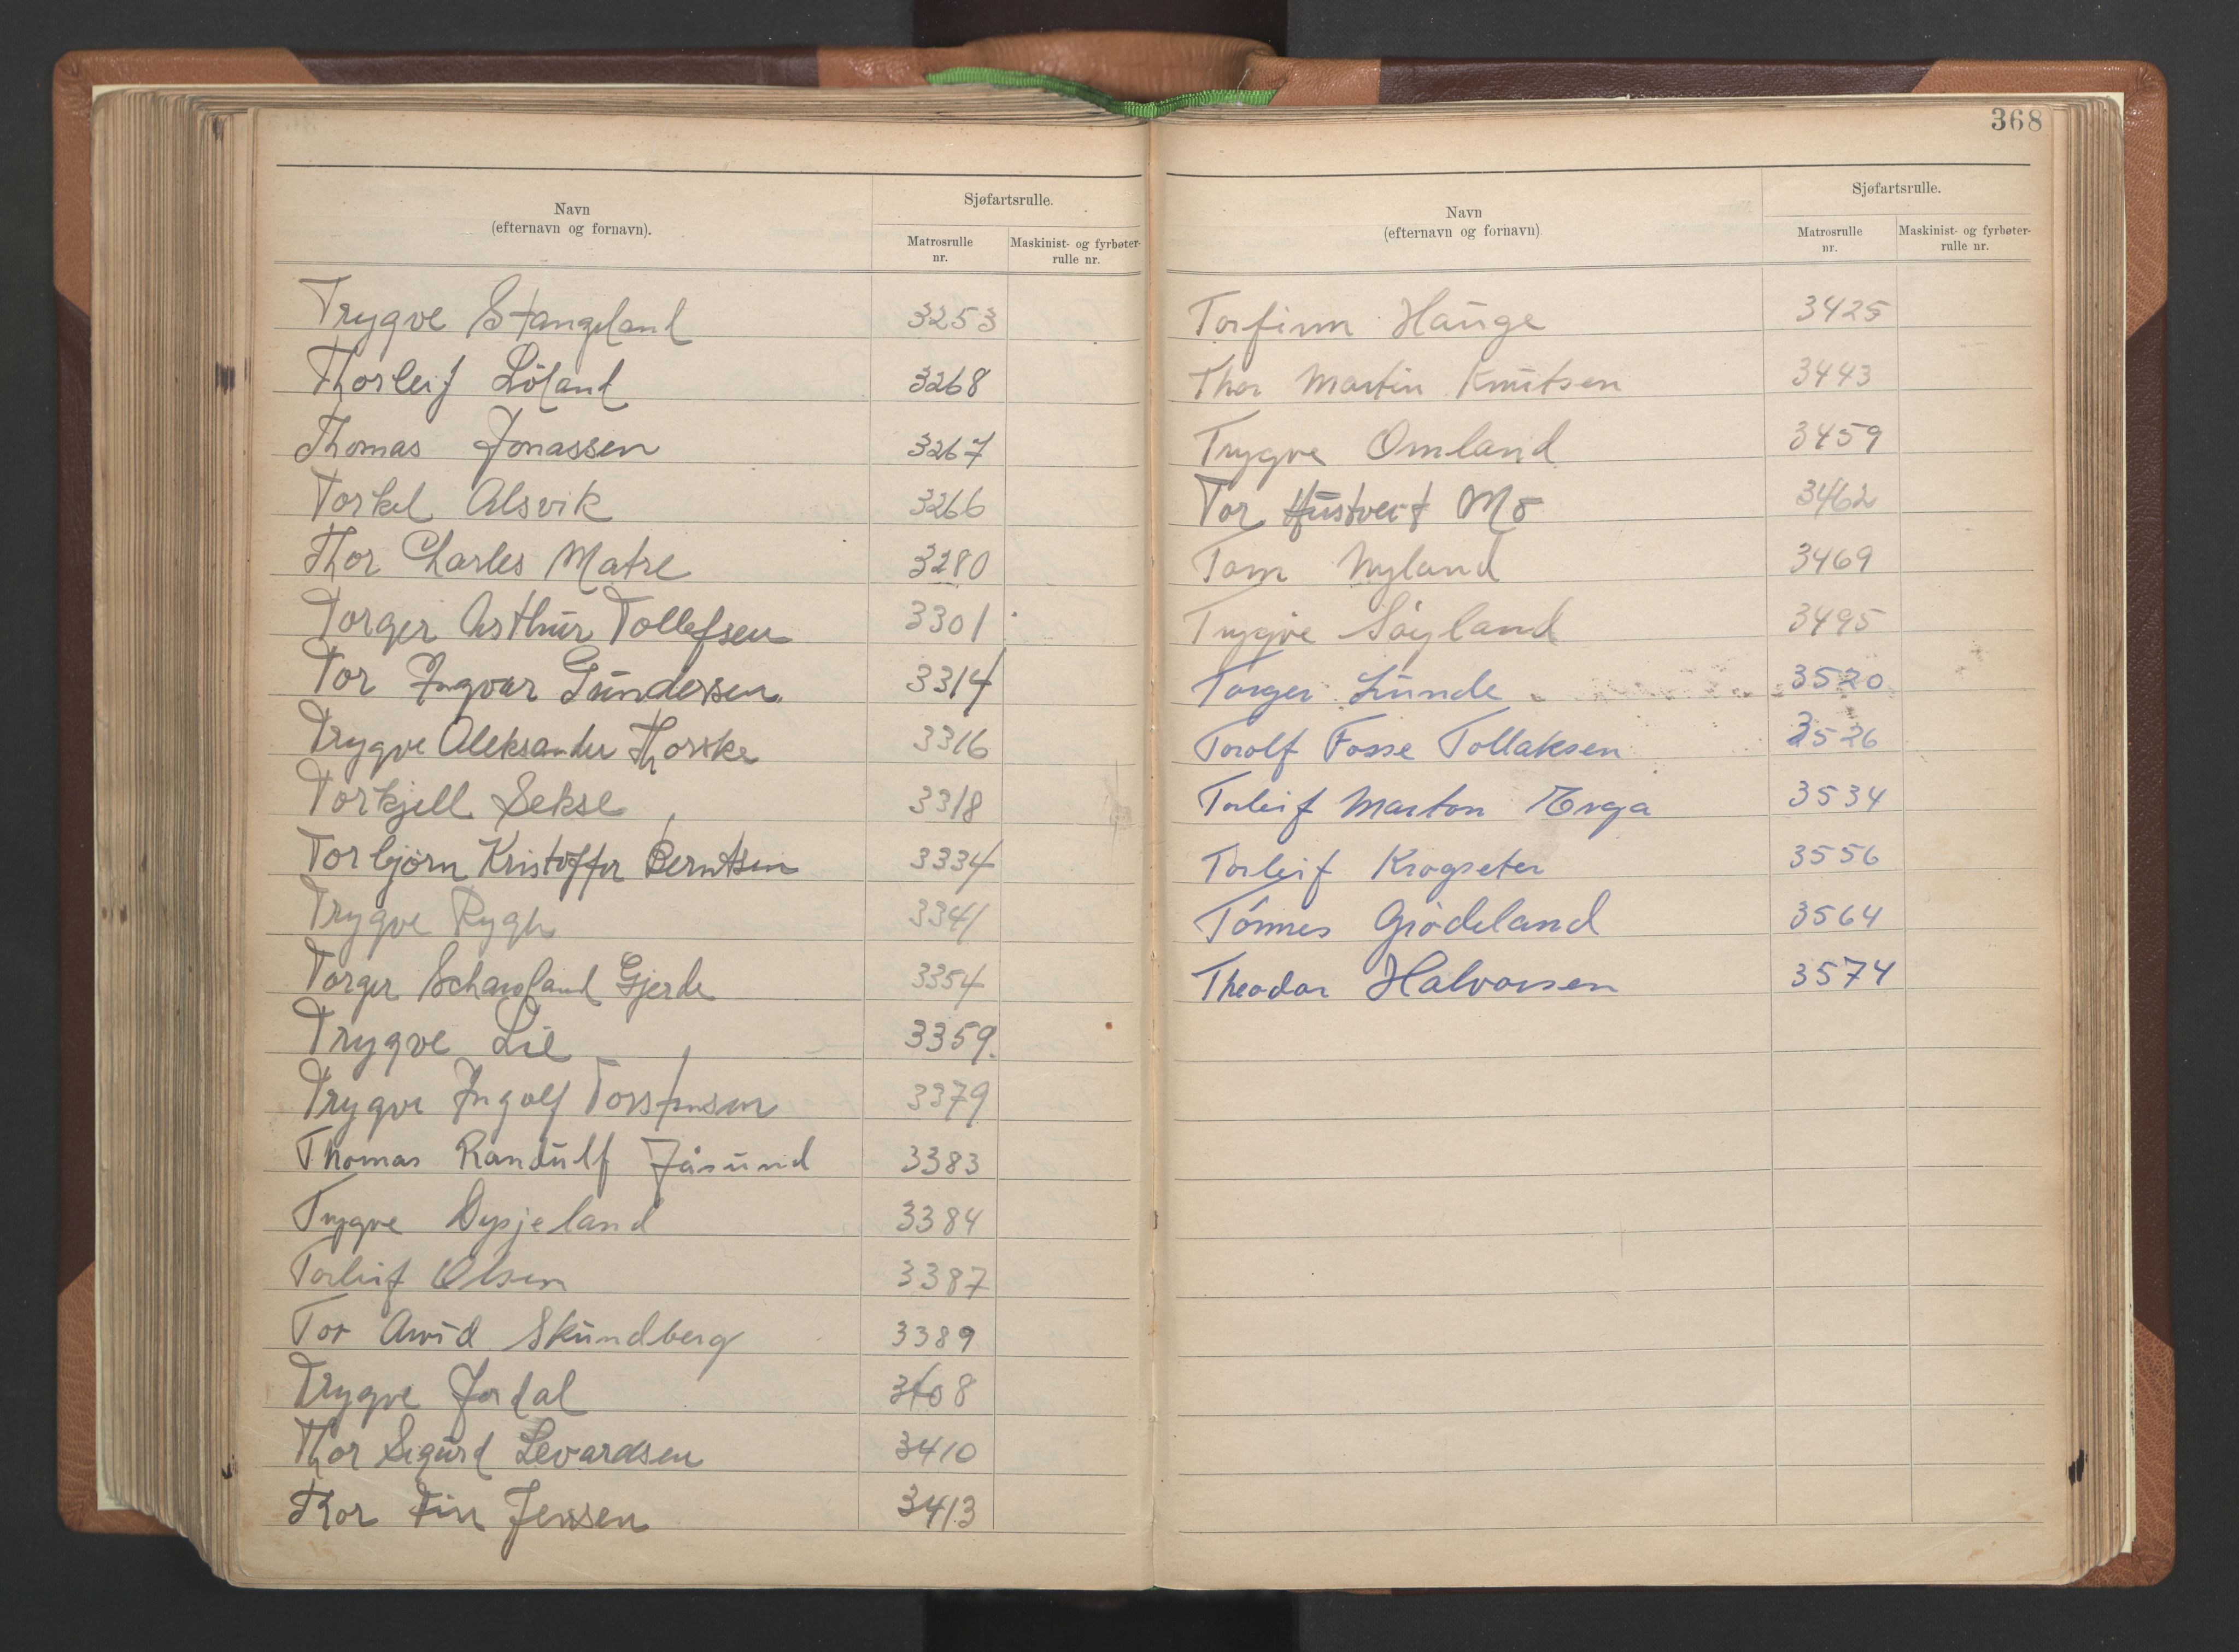 Navn
(efternavn og fornavn).
Sjøfartsrulle.
Matrosrulle
nr.
Maskinist- og fyrbøter-
rulle nr.
Trygve Stangeland 3253
Thorleif Löland 3268
Thomas Jonassen 3267
Torkel Alsvik 3266
Thor Charles Matre 3280
Torger Arthur Tollefsen 3301
Tor Ingvar Gundersen 3314
Trygve Aleksander Thorske 3316
Torkjell Sekse 3318
Torbjörn Kristoffer Berntsen 3334
Trygve Rygh 3341
Torger Schauland Gjerde 3354
Trygve Lie 3359.
Trygve Ingolf Torstensen 3379
Thomas Randulf Jåsund 3383
Trygve Dysjeland 3384
Torleif Olsen 3387
Tor Arvid Skundberg 3389
Trygve Jordal 3408
Thor Sigurd Levardsen 3410
Thor Finn Jensen 3413
368
Navn
(efternavn og fornavn).
Sjøfartsrulle.
Matrosrulle
nr.
Maskinist- og fyrbøter-
rulle nr.
Torfinn Hauge 3425
Thor Martin Knutsen 3443
Trygve Omland 3459
Tor Hustveit Mo 3462
Tom Nyland 3469
Trygve Söyland 3495
Torger Lunde 3520
Torolf Fosse Tollaksen 3526
Torleif Marton Erga 3534
Torleif Krogseter 3556
Tönnes Grödeland 3564
Theodor Halvorsen 3574